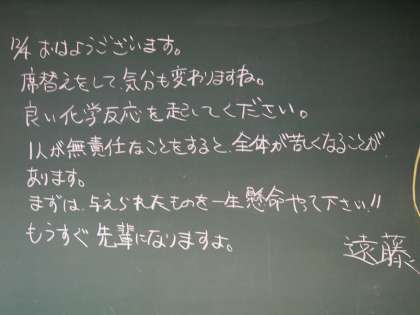 12/4 おはようございます。
席替えをして、気分も変わりますね。
良い化学反応を起してください。
1人が無責任なことをすると、全体が苦しくなることが
あります。
まずは、与えられたものを一生懸命やって下さい!!
もうすぐ先輩になりますよ。
遠藤